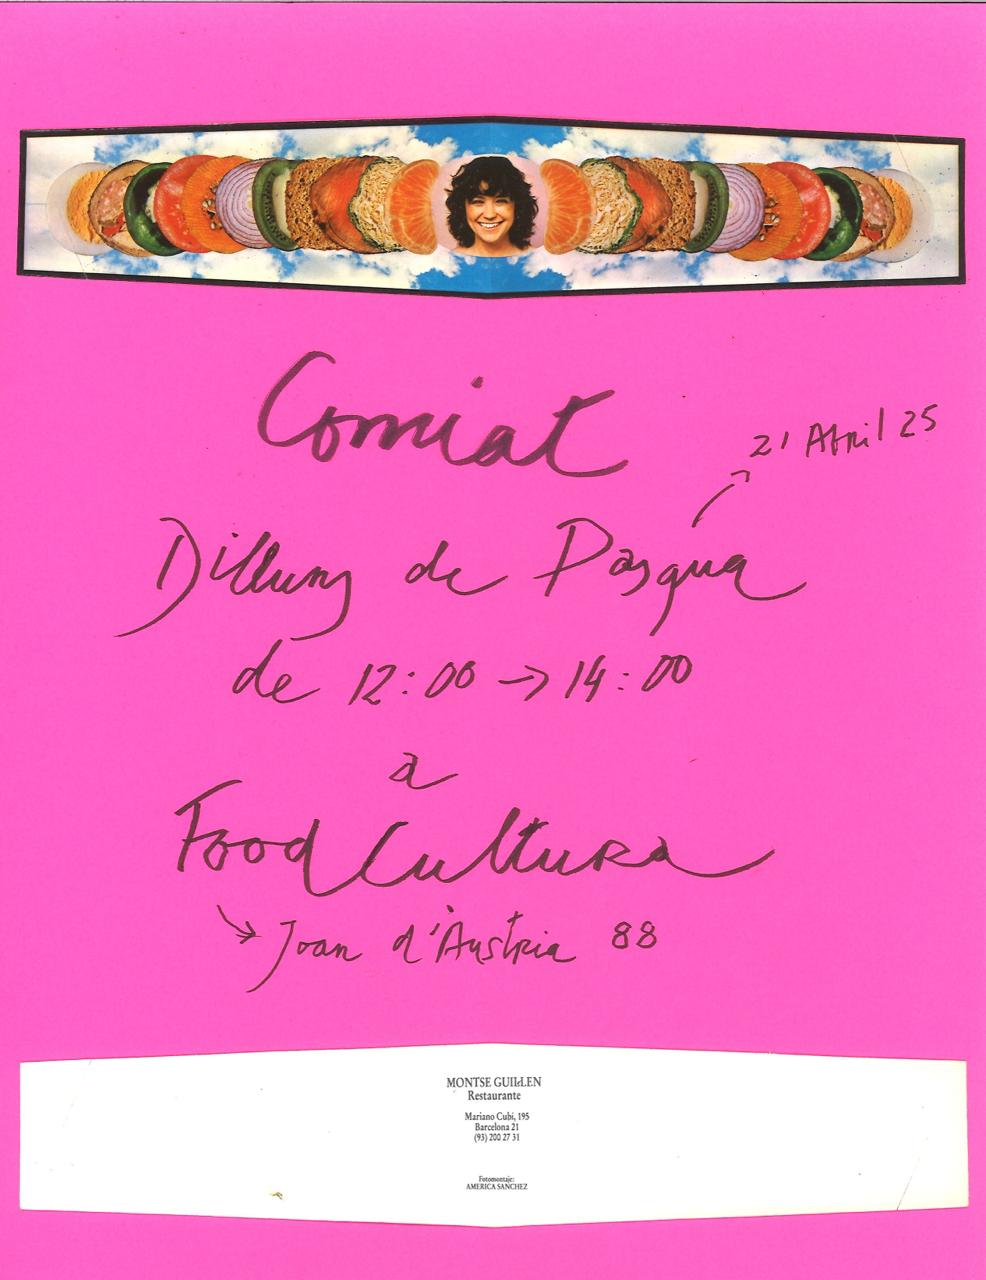 Comiat
21 Abril 25
Dilluns de Pasqua
de 12:00 → 14:00
a
Food Cultura
Joan d'Àustria 88
MONTSE GUILLEN
Restaurante
Mariano Cubí, 195
Barcelona 21
(93) 200 27 31
Fotomontaje:
AMERICA SANCHEZ